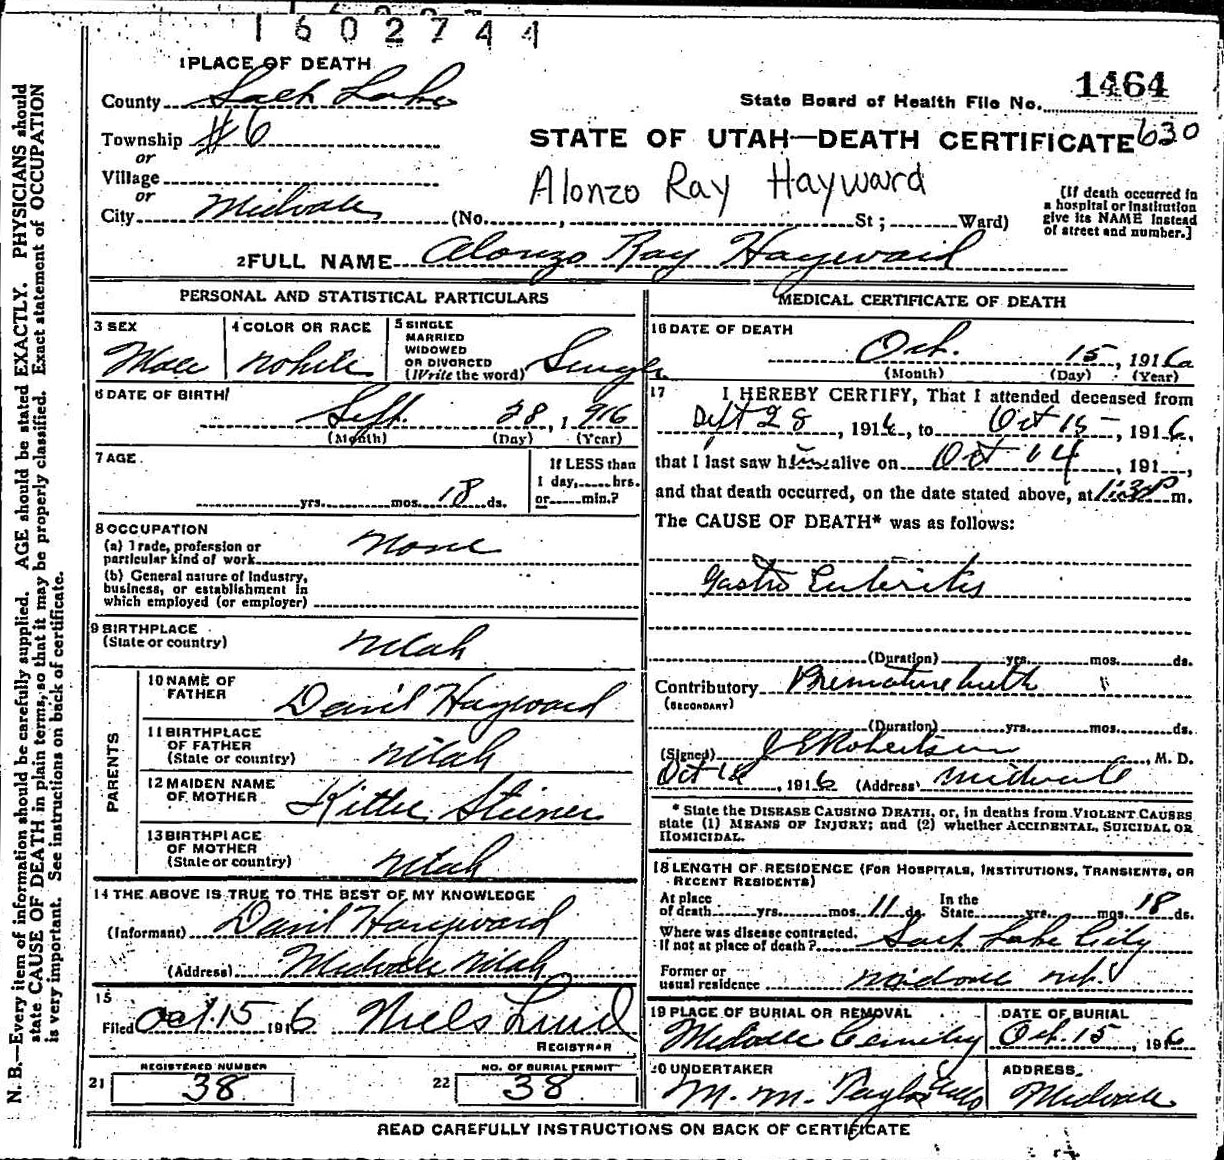 1602744
1 PLACE OF DEATH
County Salt Lake
State Board of Health File No. 1464
Township #6
or
STATE OF UTAH—DEATH CERTIFICATE 630
Village
or
Alonzo Ray Hayward
City Midvale (No. , St; Ward)
(If death occurred in
a hospital or institution
give its NAME instead
of street and number.]
2 FULL NAME Alonzo Ray Hayward
PERSONAL AND STATISTICAL PARTICULARS
3 SEX
Male
4 COLOR OR RACE
White
5 SINGLE
MARRIED
WIDOWED
OR DIVORCED
(Write the word) Single
6 DATE OF BIRTH
Sept. 28, 1916
(Month) (Day) (Year)
7 AGE
yrs. mos. 18 ds.
If LESS than
1 day, hrs.
or min.?
8 OCCUPATION
(a) Trade, profession or
particular kind of work None
(b) General nature of Industry,
business, or establishment in
which employed (or employer)
9 BIRTHPLACE
(State or country) Utah
PARENTS
10 NAME OF
FATHER David Hayward
11 BIRTHPLACE
OF FATHER
(State or country) Utah
12 MAIDEN NAME
OF MOTHER Kittie Steiner
13 BIRTHPLACE
OF MOTHER
(State or country) Utah
14 THE ABOVE IS TRUE TO THE BEST OF MY KNOWLEDGE
(Informant) David Hayward
(Address) Midvale Utah
15
Filed Oct. 15 1916 Niels Lind
REGISTRAR
REGISTERED NUMBER
21 38
NO. OF BURIAL PERMIT
22 38
MEDICAL CERTIFICATE OF DEATH
16 DATE OF DEATH
Oct. 15, 1916
(Month) (Day) (Year)
17 I HEREBY CERTIFY, That I attended deceased from
Sept 28, 1916, to Oct 15, 1916,
that I last saw him alive on Oct 14, 191 ,
and that death occurred, on the date stated above, at 1:30 P m.
The CAUSE OF DEATH* was as follows:
Gastro Enteritis
(Duration) yrs. mos. ds.
Contributory Premature birth
(SECONDARY)
(Duration) yrs. mos. ds.
(Signed) J E Robertson, M. D.
Oct , 1916 (Address) Midvale
* State the DISEASE CAUSING DEATH, or, in deaths from VIOLENT CAUSES
state (1) MEANS OF INJURY; and (2) whether ACCIDENTAL, SUICIDAL OR
HOMICIDAL.
18 LENGTH OF RESIDENCE (FOR HOSPITALS, INSTITUTIONS, TRANSIENTS, OR
RECENT RESIDENTS)
At place
of death yrs. mos. 11 ds.
In the
State yrs. mos. 18 ds.
Where was disease contracted,
If not at place of death? Salt Lake City
Former or
usual residence Midvale
19 PLACE OF BURIAL OR REMOVAL
Midvale Cemetery
DATE OF BURIAL
Oct. 15, 1916
20 UNDERTAKER
M. M. Taylor
ADDRESS
Midvale
READ CAREFULLY INSTRUCTIONS ON BACK OF CERTIFICATE
N. B.—Every item of information should be carefully supplied. AGE should be stated EXACTLY. PHYSICIANS should
state CAUSE OF DEATH in plain terms, so that it may be properly classified. Exact statement of OCCUPATION
is very important. See instructions on back of certificate.